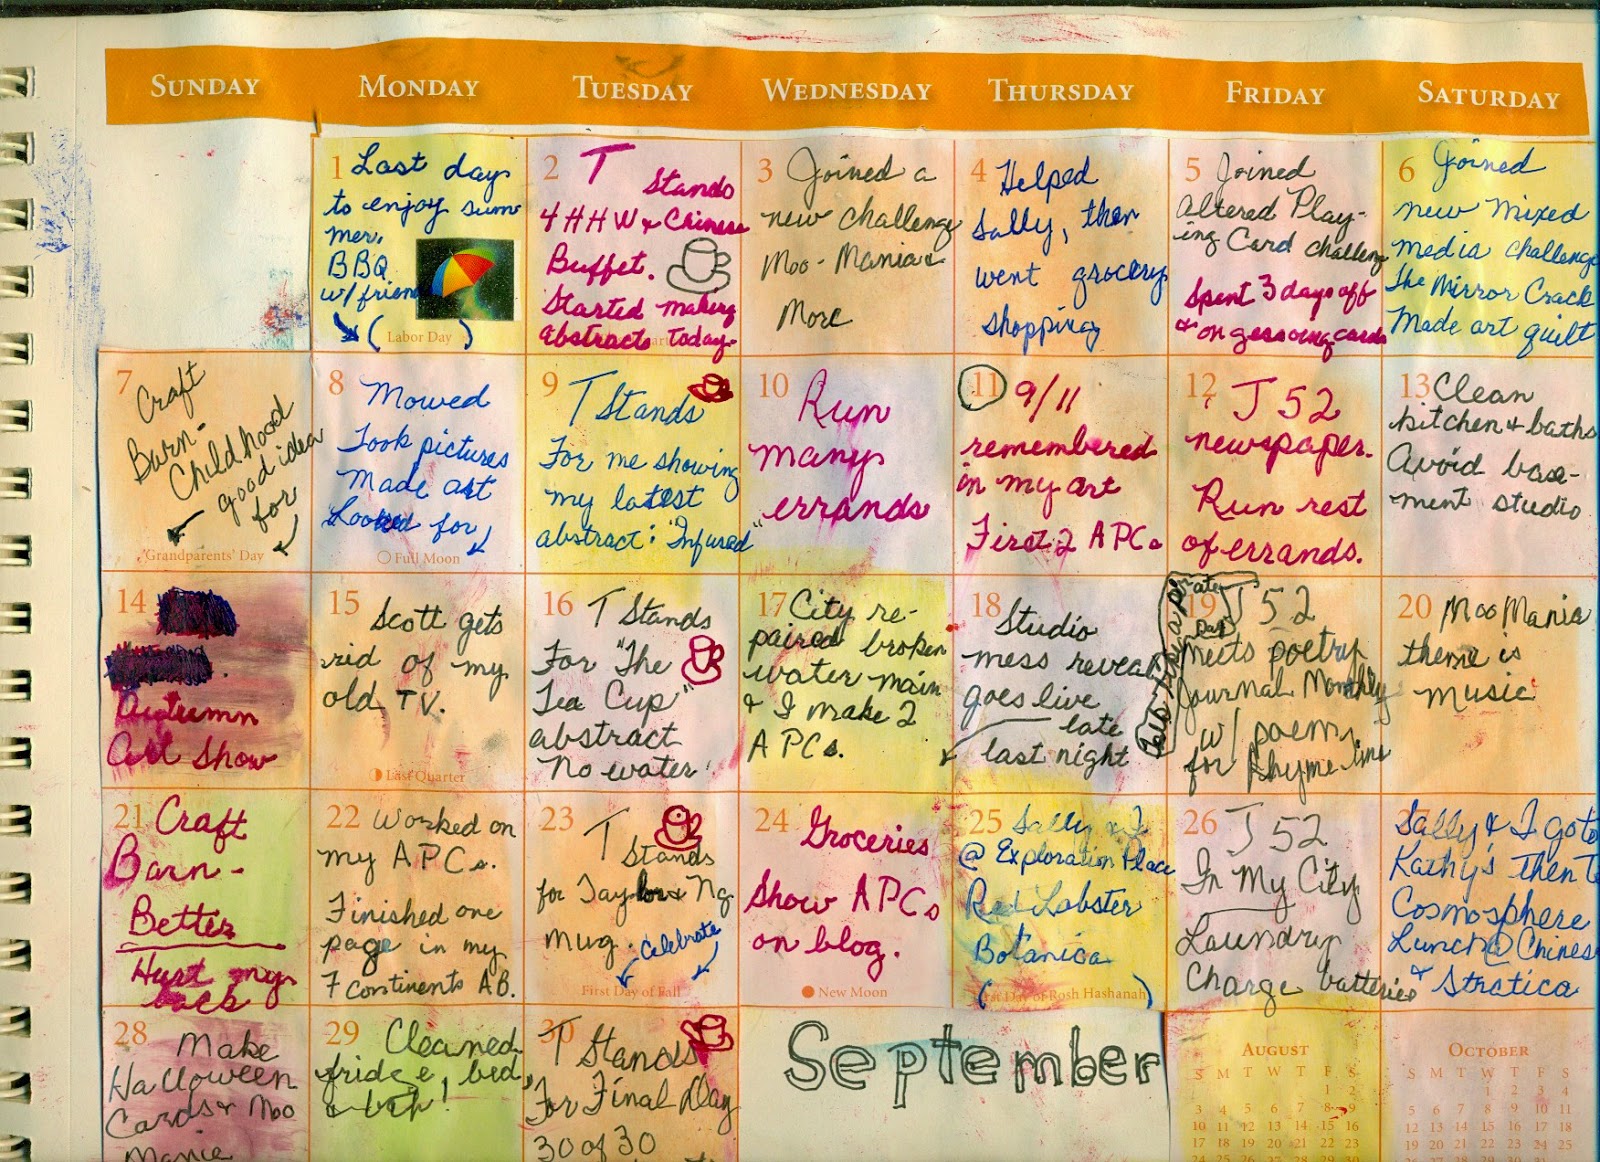 SUNDAY MONDAY TUESDAY WEDNESDAY THURSDAY FRIDAY SATURDAY
1 Last days
to enjoy sum
mer.
BBQ
w/friend
(Labor Day)
2 T
Stands
4 HHW & Chinese
Buffet.
Started making
abstracts today.
3 Joined a
new challenge
Moo-Mania &
More
4 Helped
Sally, then
went grocery
shopping
5 Joined
Altered Play-
ing Card challenge
Spent 3 days off
& on gessoing cards
6 Joined
new mixed
media challenge
The Mirror Crack
Made art quilt
7 Craft
Barn-
Childhood
good idea
for
Grandparents' Day
8 Mowed
Took pictures
Made art
Looked for
Full Moon
9 T Stands
For me showing
my latest
abstract: "Infused"
10 Run
many
errands
11 9/11
remembered
in my art
First 2 APCs
12 J52
newspaper.
Run rest
of errands.
13 Clean
kitchen & baths
Avoid base-
ment studio
14
Autumn
Art Show
15 Scott gets
rid of my
old TV.
Last Quarter
16 T Stands
For "The
Tea Cup"
abstract
No water!
17 City re-
paired broken
water main
& I make 2
APCs.
18 Studio
mess reveal
goes live
late
last night
19 J52
meets poetry
Journal Monthly
w/ poem
for Rhyme time
Talk Like a Pirate
Day
20 Moo Mania
theme is
music
21 Craft
Barn-
Better
Hurt my
back
22 Worked on
my APCs.
Finished one
page in my
7 Continents AB.
23 T
Stands
for Taylor & Ng
mug. Celebrate
First Day of Fall
24 Groceries
Show APCs
on blog.
New Moon
25 Sally & I
@ Exploration Place
Red Lobster
Botanica
(1st Day of Rosh Hashanah)
26 J52
In My City
Laundry
Charge batteries
27 Sally & I go to
Kathy's then to
Cosmosphere
Lunch @ Chinese
& Stratica
28 Make
Halloween
Cards & Moo
Manie
29 Cleaned
fridge, bed,
30 T Stands
For Final Day
30 of 30
September
AUGUST
S M T W T F S
1 2
3 4 5 6 7 8 9
10 11 12 13 14 15 16
17 18 19 20 21 22 23
OCTOBER
S M T W T F S
1 2 3 4
5 6 7 8 9 10 11
12 13 14 15 16 17 18
19 20 21 22 23 24 25